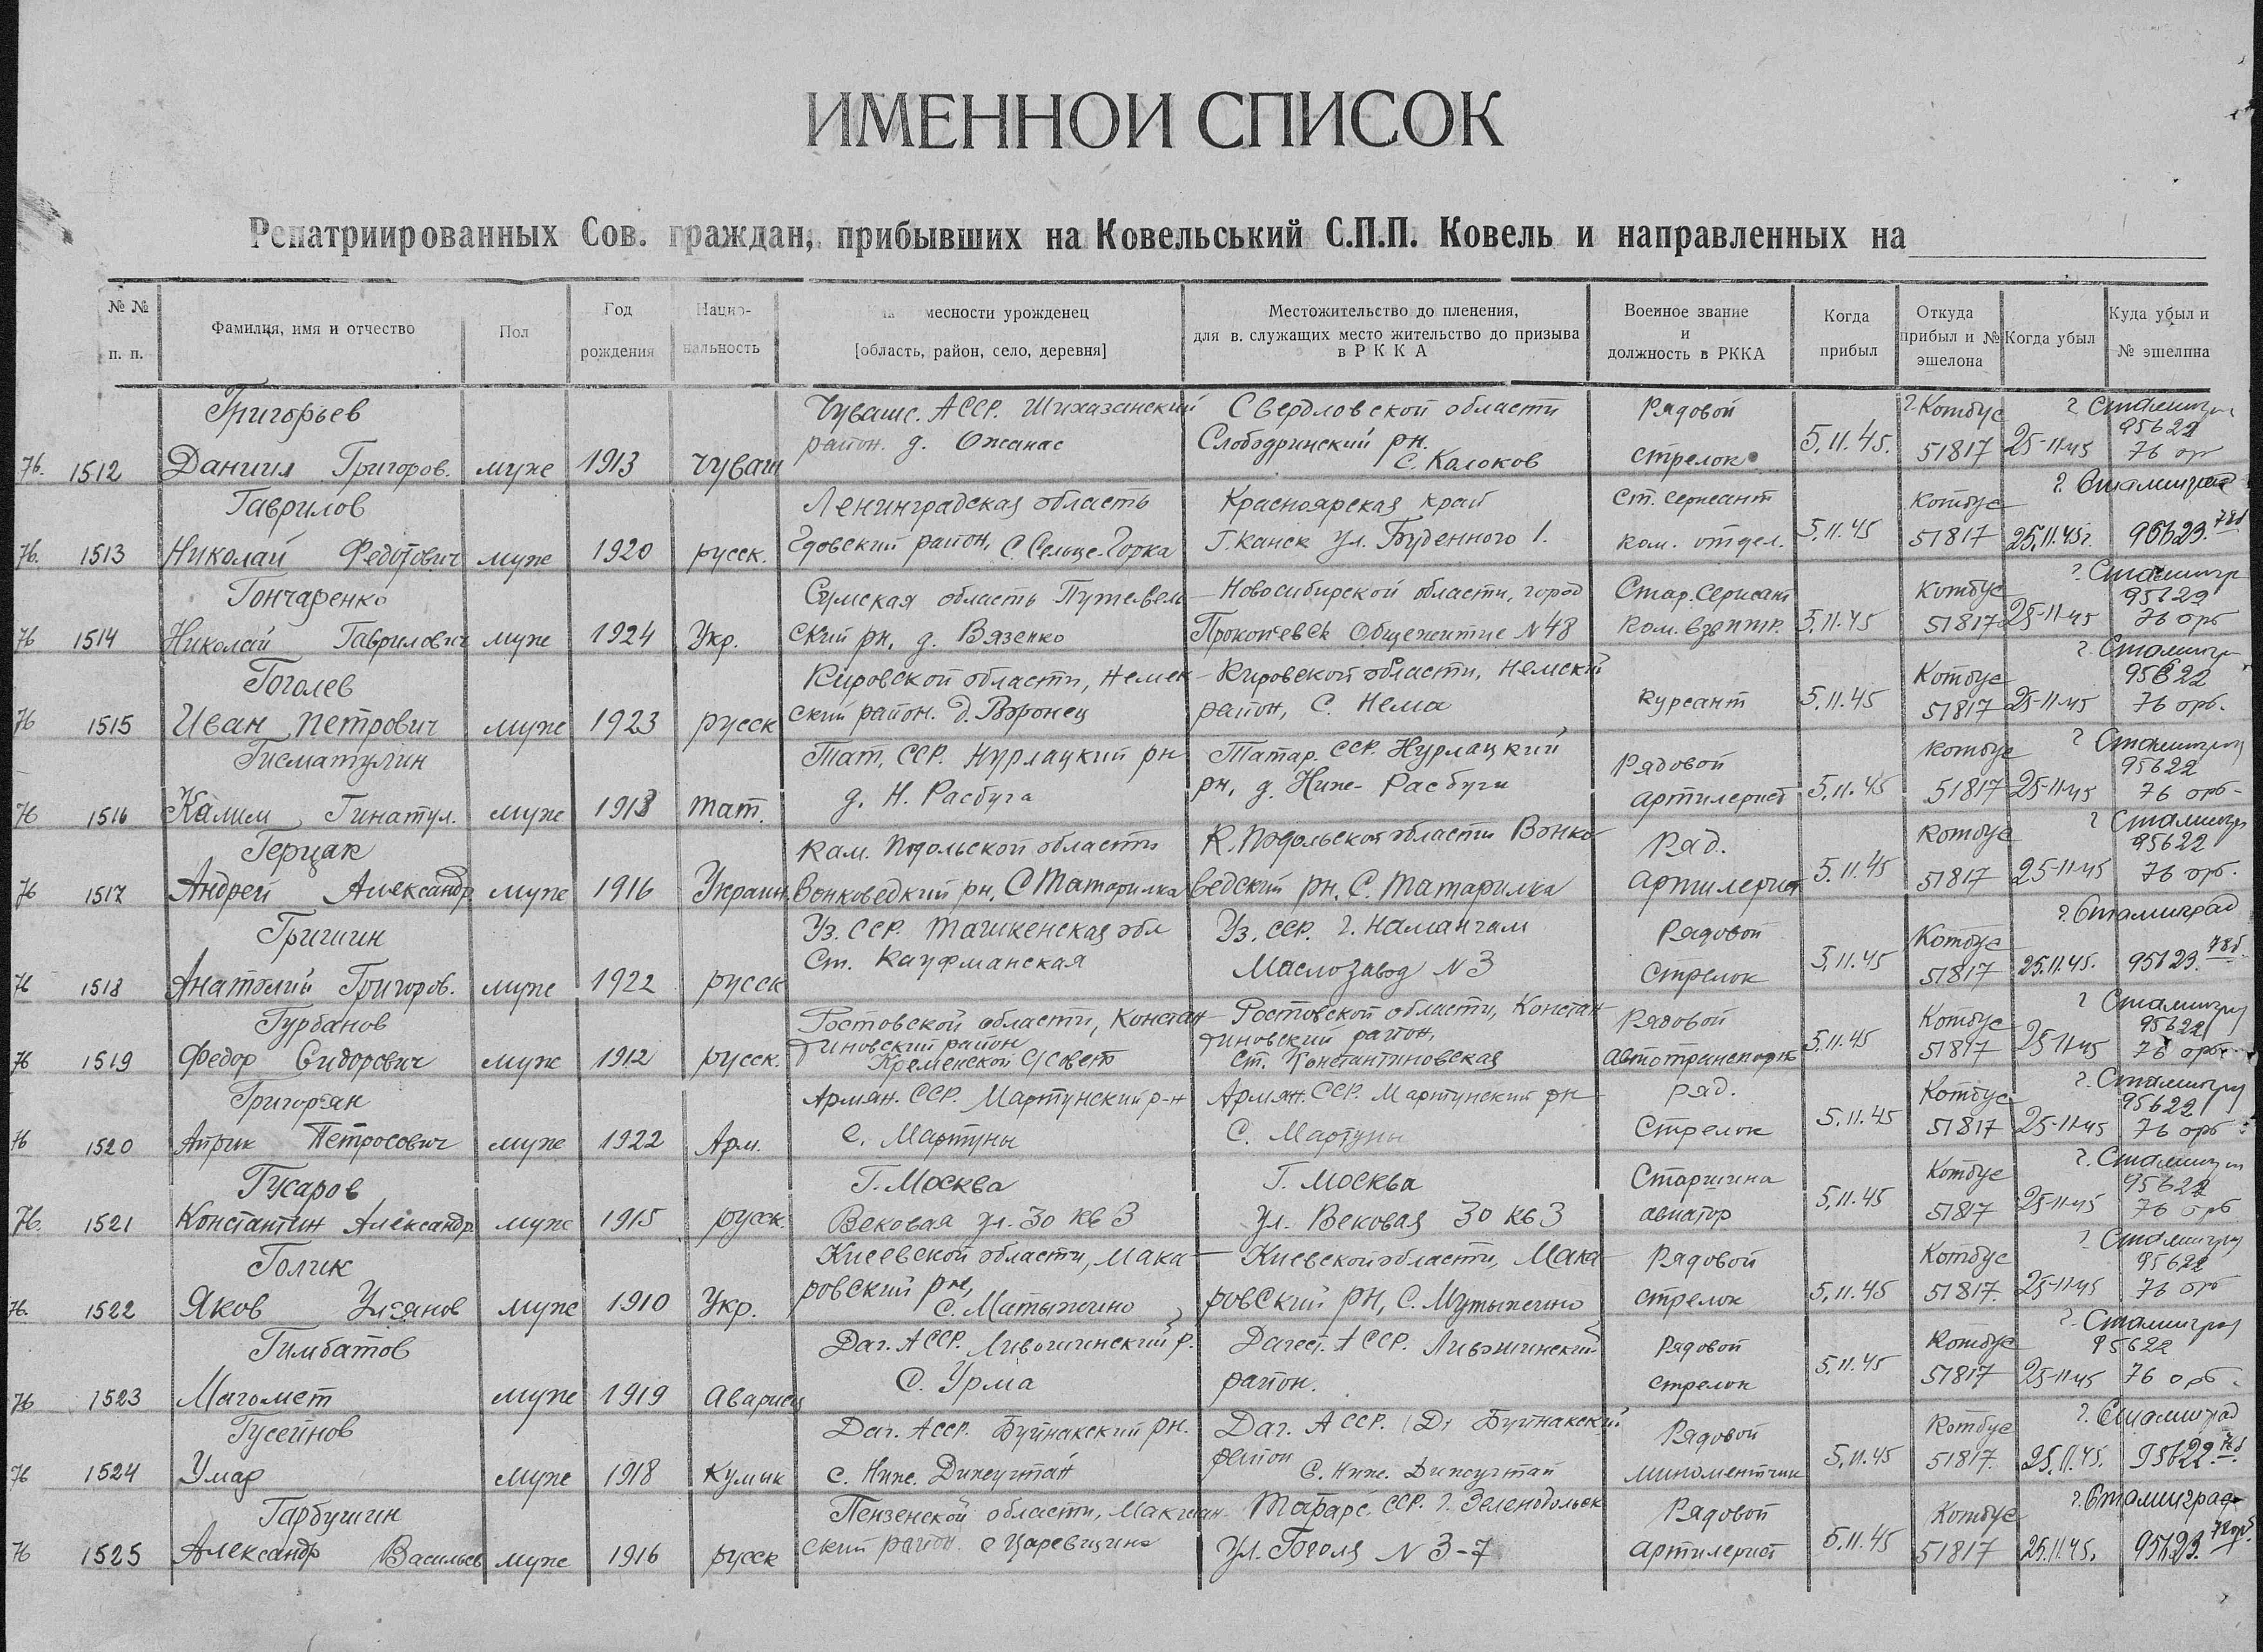 ИМЕННОЙ СПИСОК
Репатриированных Сов. граждан, прибывших на Ковельський С.П.П. Ковель и направленных на
№ № п. п. Фамилия, имя и отчество Пол Год рождения Национальность месности урожденец [область, район, село, деревня] Местожительство до пленения, для в. служащих место жительство до призыва в Р К К А Военное звание и должность в РККА Когда прибыл Откуда прибыл и № эшелона Когда убыл Куда убыл и № эшелпна
Григорьев Чувашс. АССР. Шихазанский Свердловской области Рядовой г. Котбус г.
район. д. Слободринский рн. 5.11.45. 95622
76. 1512 Даниил Григоров. муж 1913 чуваш С. Калоков стрелок 51817 25-11-45 76
Гаврилов Ленинградская область Красноярская край Ст. сержант Котбус г. Сталинград
76. 1513 Николай Федотович муж 1920 русск. Гдовский район, С. Сельце-Горка Г. Канск ул. Буденного 1. ком. отдел. 5.11.45 51817 25.11.45г. 95623.
Гончаренко Сумская область Путевель- Новосибирской области, город Стар. Сержант Котбус г. Сталингр 95622
76 1514 Николай Гаврилович муж 1924 Укр. ский рн, д. Вязенко Прокопевск Общежитие N 48 Ком. 5.11.45 51817 25-11-45 76 орб
Гоголев Кировской области, Немек- Кировской области, Немский Котбус г. Сталингр 95622
76 1515 Иван Петрович муж 1923 русск ский район. д. Воронец район, С. Нема курсант 5.11.45 51817 25-11-45 76 орб.
Гисматулин Тат. ССР. Нурлацкий рн Татар. ССР. Нурлацкий Рядовой Котбус г. Сталинград 95622
76 1516 Калим Гинатул. муж 1913 тат. д. Н. Расбуга рн, д. Ниж- Расбуги артилерист 5.11.45 51817 25-11-45 76 орб-
Герцак Кам. Подольской области К. Подольской области Вонко- Ряд. Котбус г. Сталингр 95622
76 1517 Андрей Александр. муж 1916 Украин. Вонковедкий рн, С Татарилка ведский рн, С. Татарилка Артилерист 5.11.45 51817 25-11-45 76 орб.
Гришин Уз. ССР. Ташкенская обл Уз. ССР. г. Намангам Рядовой Котбус г. Сталинград
76 1518 Анатолий Григоров. муж 1922 русск Ст. Кауфманская Маслозавод N 3 Стрелок 5.11.45 51817 25.11.45. 95623.
Гурбанов Ростовской области, Констан- Ростовской области, Констан- Рядовой Котбус г. Сталингр 95622
76 1519 Федор Сидорович муж 1912 русск. тиновский район тиновский район, автотранспорт 5.11.45 51817 25-11-45 76 орб.
Кременской С/совет ст. Константиновская
Григорян Армян. ССР. Мартунский р-н Армян. ССР. Мартунский рн ряд. Котбус г. Сталингр 95622
76 1520 Петросович муж 1922 Арм. с. Мартуны С. Мартуны Стрелок 5.11.45 51817 25-11-45 76 орб
Гусаров Г. Москва Г. Москва Старшина Котбус г. Сталингр 95622
76. 1521 Константин Александр. муж 1915 русск. Вековая ул. 30 кв 3 ул. Вековая 30 кв 3 авиатор 5.11.45 51817 25-11-45 76 орб
Голик Киевской области, мака- Киевской области, Мака- Рядовой Котбус г. Сталингр 95622
76. 1522 Яков Ульянов муж 1910 Укр. ровский рн, С. Матыжино ровский рн, С. Мутыжино стрелок 5.11.45 51817. 25-11-45 76 орб
Гимбатов Даг. АССР. р. Дагест. АССР. Рядовой Котбус г. Сталинград 95622
76 1523 Магомет муж 1919 аварись С. Урма район. стрелок 5.11.45 51817 25-11-45 76 орб.
Гусейнов Даг. АССР. Буйнакский рн. Даг. АССР. Буйнакский Рядовой Котбус г. Сталинград
76 1524 Умар муж 1918 Кумык с. Ниж. Дижугтай район С. Ниж. Дижугтай минометчик 5.11.45 51817. 25.11.45. 95622.
Гарбушин Пензенской области, Макшан- Татарс. ССР. г. Зеленодольск Рядовой Котбус г. Сталинград
76 1525 Александр Васильев муж 1916 русск ский район с Царевщино Ул. Гоголя N 3-7 артилерист 5.11.45 51817 25.11.45. 95623.